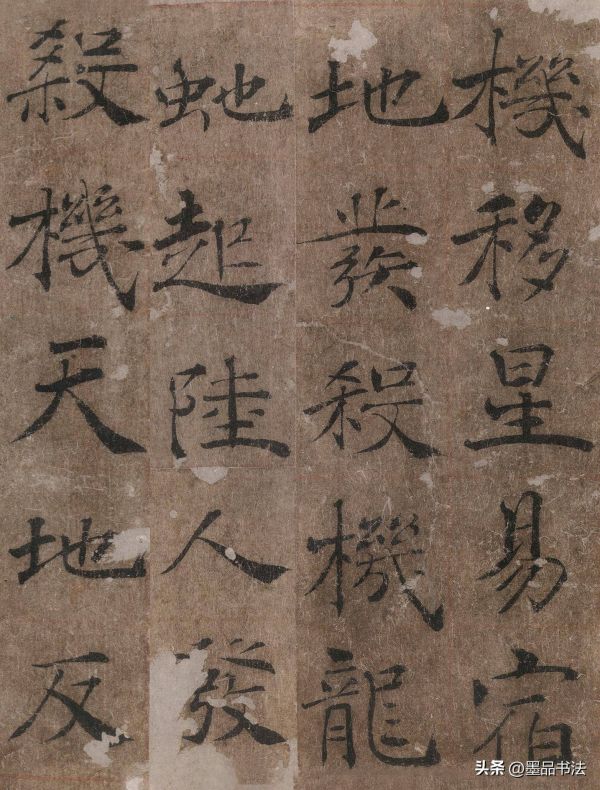 機移星易宿
地發殺機龍
虵起陸人發
殺機天地反
头条 @墨品书法